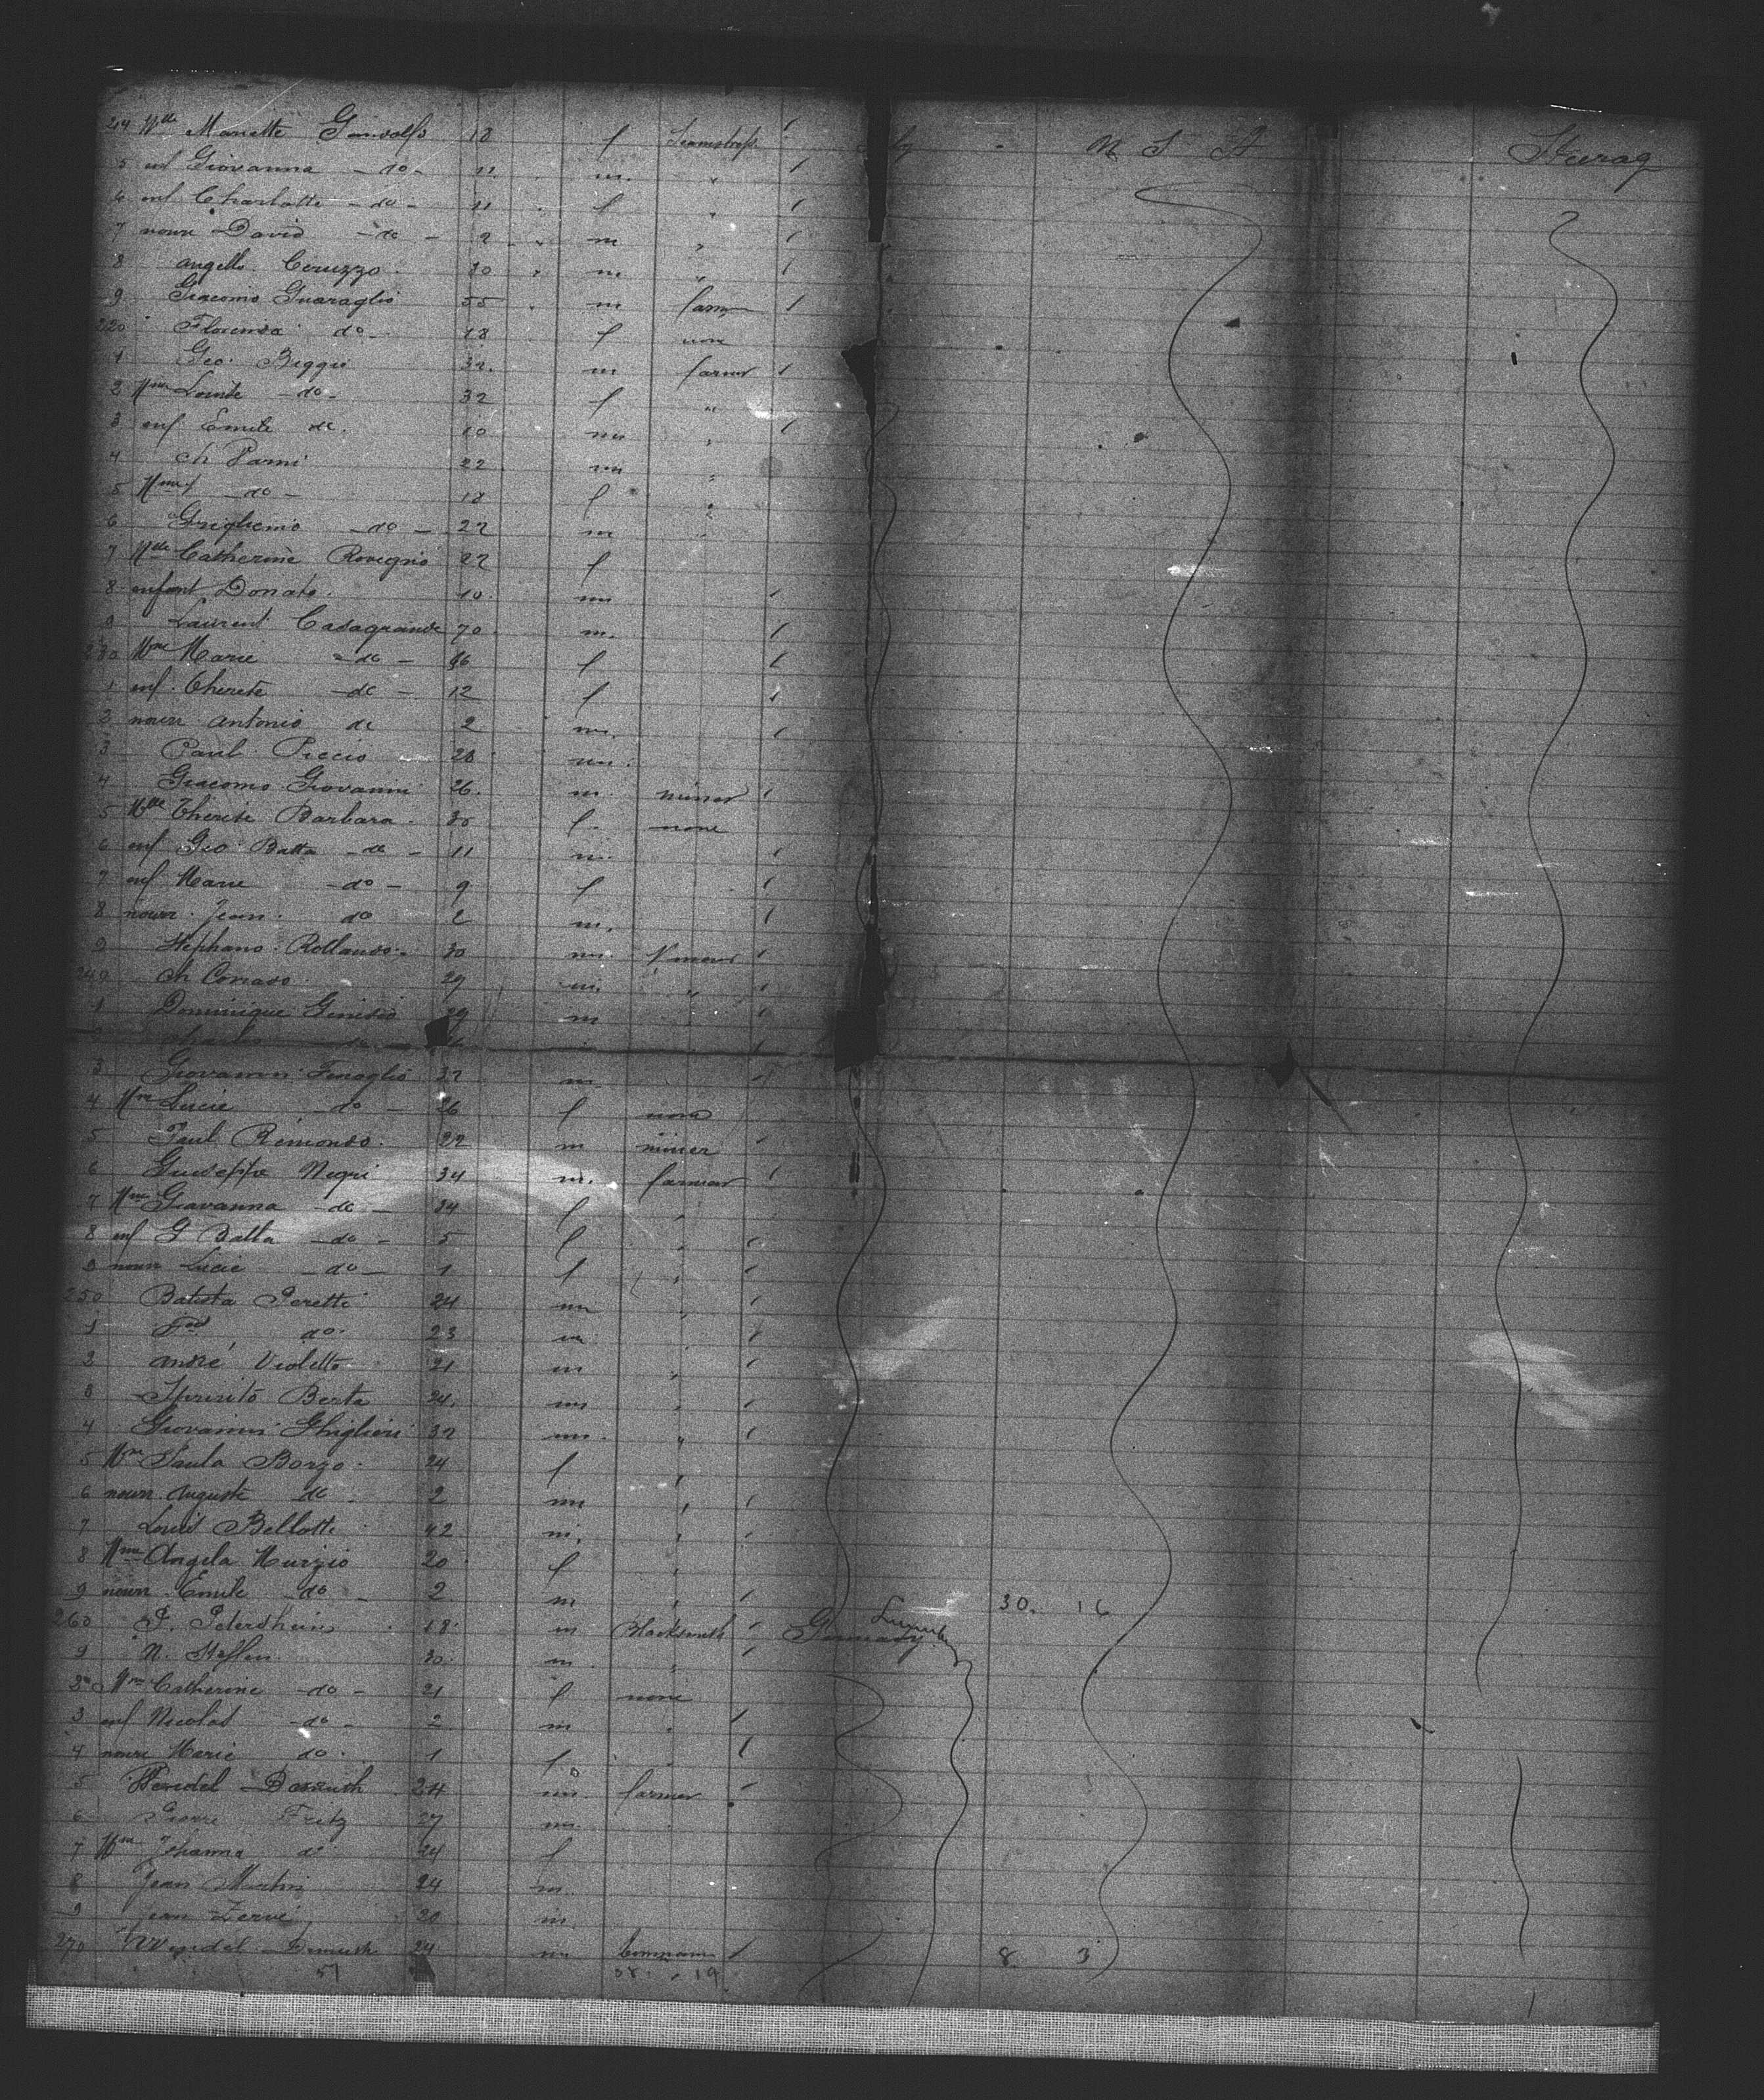 214 Mlle Manette Gandolfo 18 f Seamstress U S A Steerag
5 enf Giovanna - do - 11 m. "
6 enf Charlotte - do - 11 f "
7 nourr David - do - 2 m "
8 Angello Ceruzzo 30 m "
9 Giacomo Guaraglio 55 m farm
220 Florensa do - 18 f none
1 Geo Biggio 32 m farmer
2 Mme Louise - do - 32 f "
3 enf Emile do. 10 m "
4 Ch Parmi 22 m "
5 Mme - do - 18 f "
6 Griglienio - do - 22 m "
7 Mlle Catherine Rovegno 22 f
8 enfant Donato. 10 m
9 Laurent Casagrande 70 m.
230 Mme Marie - do - 46 f
1 enf. Therete - do - 12 f
2 nourr Antonio do 2 m.
3 Paul Piccio 28 m.
4 Giacomo Giovanni 26. m. miner
5 Mlle Therese Barbara 30 f. none
6 enf Geo Batta - do - 11 m.
7 enf Marie - do - 9 f
8 nourr. Jean. do 2 m.
9 Stephano Rollando 30 m.
240 Ch Conrado 29 m. "
1 Dominique Ginisio 29 m
2 Charles - do -
3 Giovanni Finoglio 32 m
4 Mme Lucie - do - 26 f none
5 Paul Rimondo. 22 m miner
6 Guiseppe Negri 34 m. farmer
7 Mme Giavanna - do - 24 f "
8 enf G Batta - do - 5 f "
9 nourr Lucie - do - 1 f "
250 Batista Peretti 24 m "
1 do. 23 m "
2 André Violette 21 m "
3 Spirito Berta 24. m "
4 Giovanni Ghiglieri 32 m. "
5 Mme Paula Borzo 24 f "
6 nourr Auguste do 2 m "
7 Louis Bellotti 42 m. "
8 Mme Angela Murzio 20 f "
9 nourr Emile do - 2 m " 30. 16
260 P. Petershein 18 m Blacksmith Germany
9 N. Steffen 30. m "
2 Mme Catherine - do - 21 f none
3 enf Nicolas - do - 2 m "
4 nourr Marie do. 1 f "
5 Wendel 24 m. farmer
6 Pierre Fritz 27 m.
7 Mme Johanna do 24 f
8 Jean Martin 24 m.
9 Jean 20 m.
270 Wendel 24 m 8 3
57 19